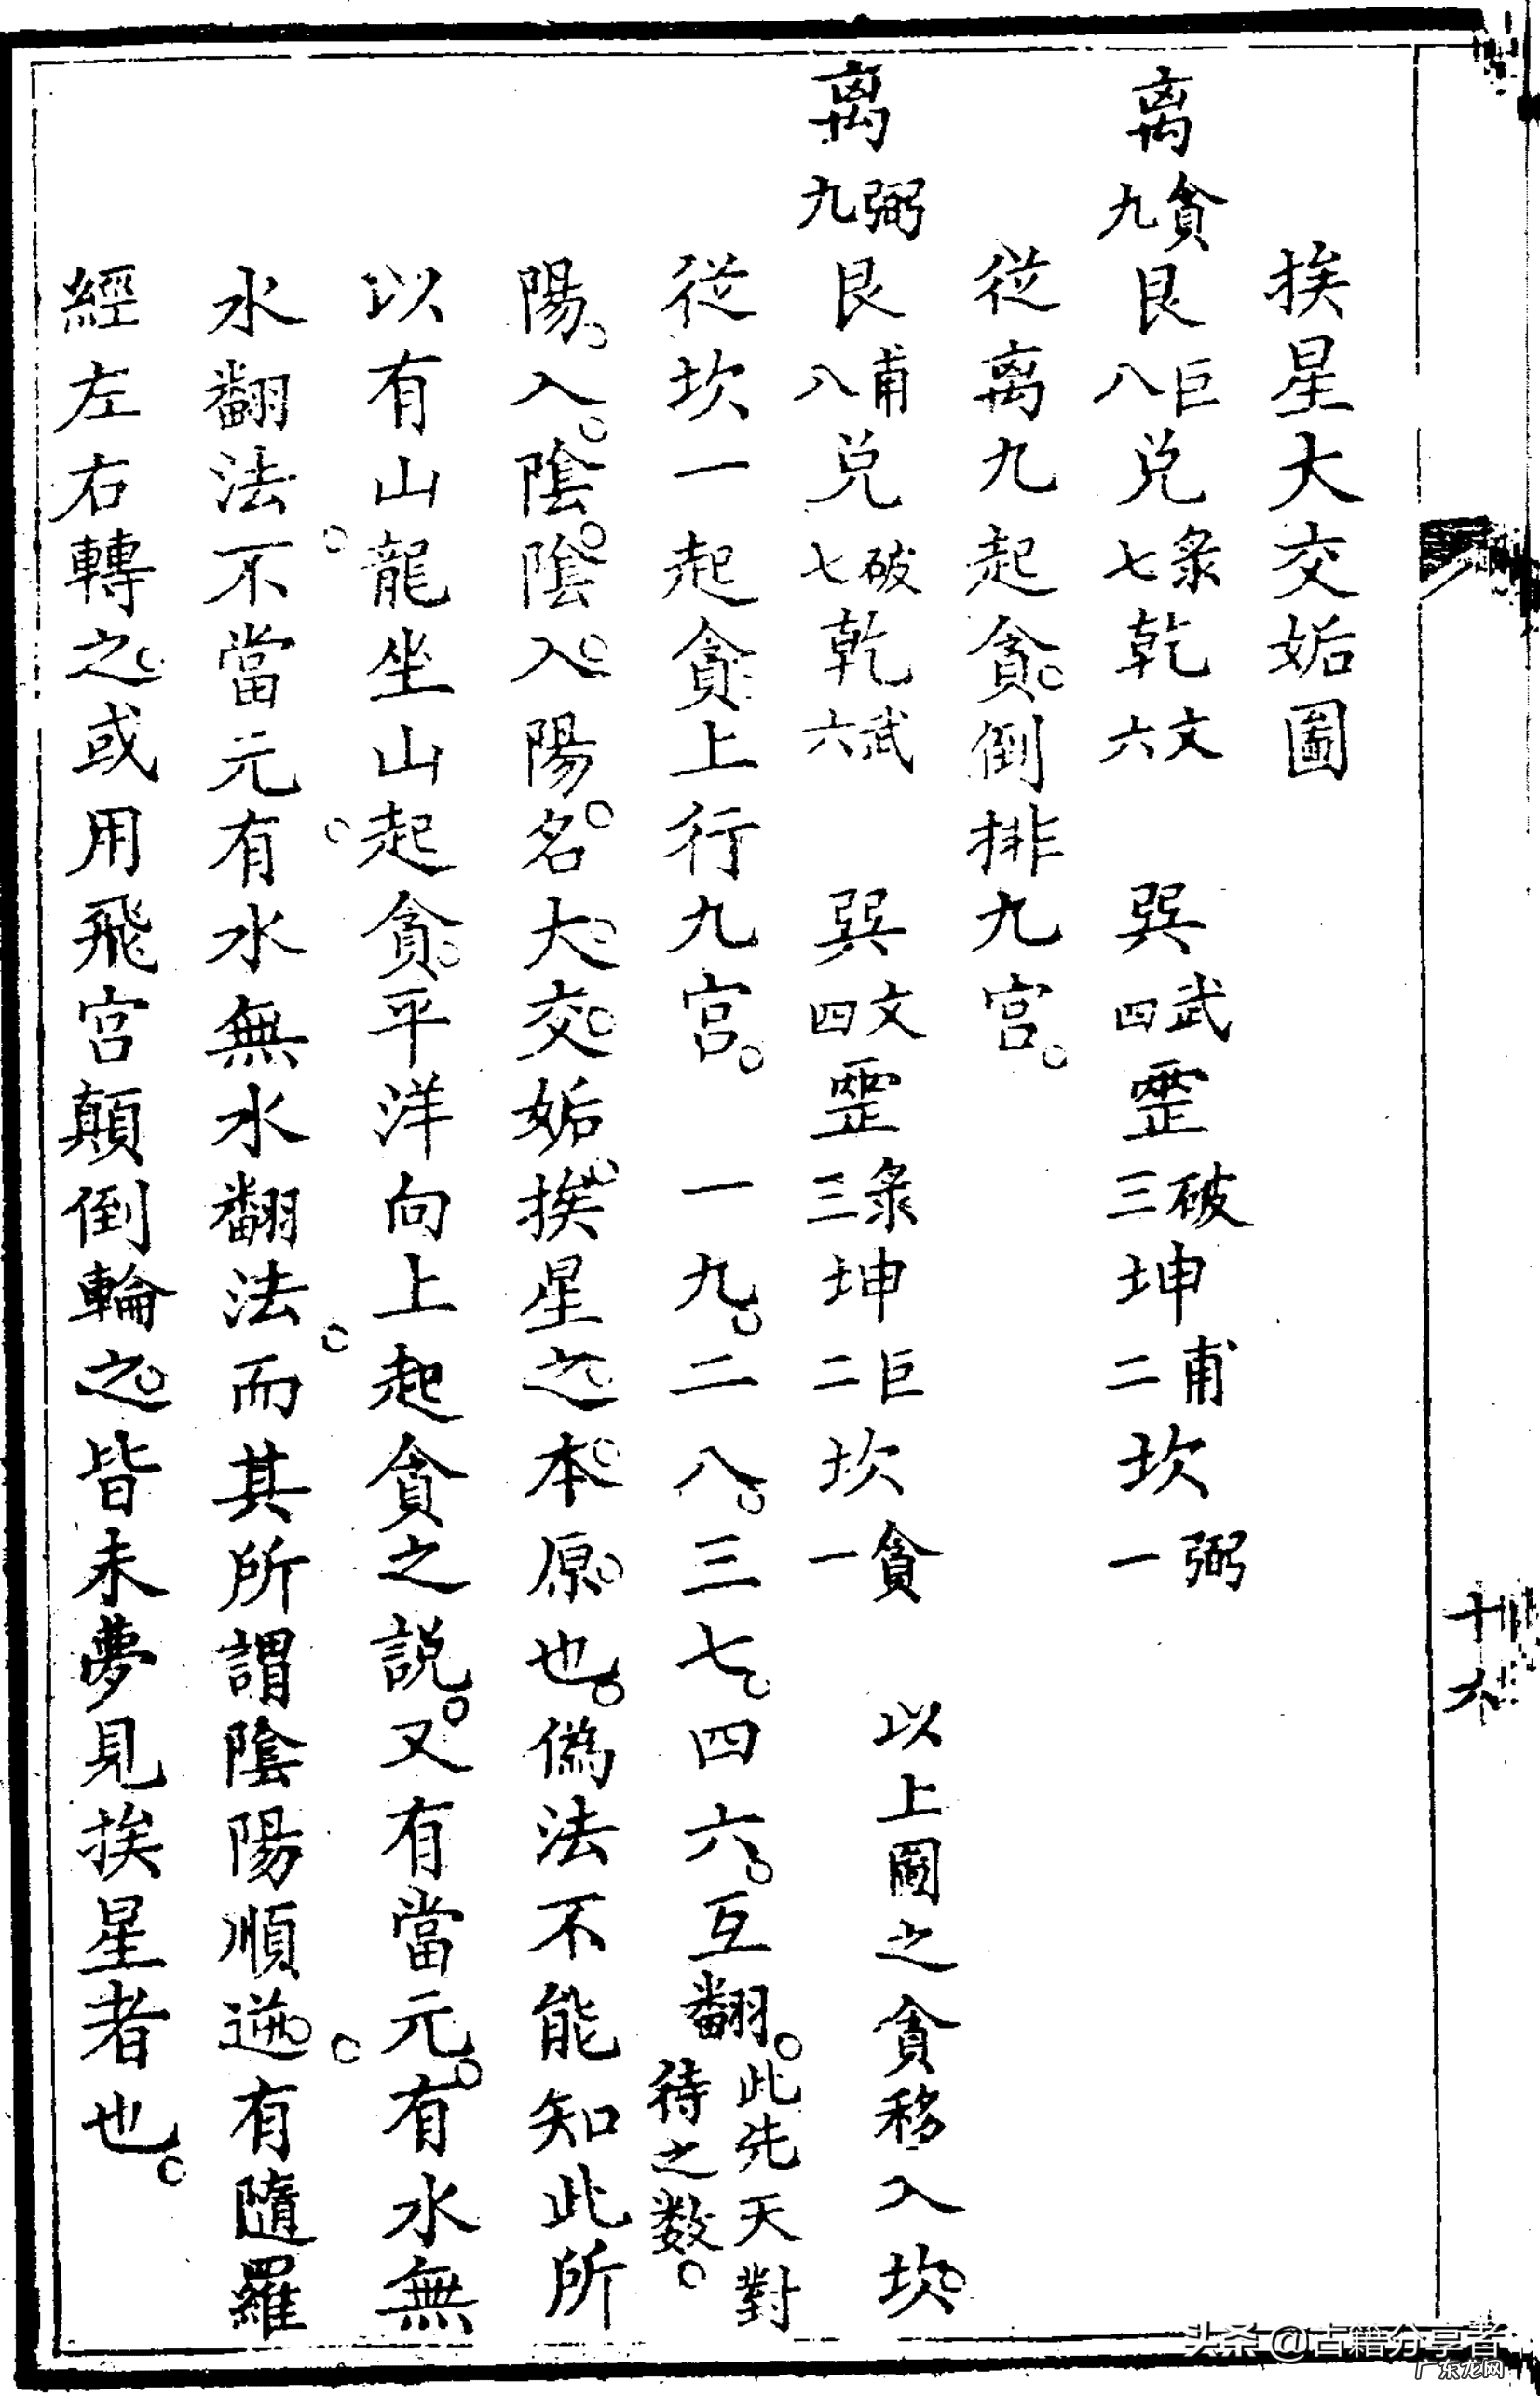 挨星大交姤圖
离九貪艮八巨兑七彔乾六文 巽四武䨓三破坤二甫坎一弼
從离九起貪。倒排九宫。
离九弼艮八甫兑七破乾六武 巽四文䨓三彔坤二巨坎一貪 以上圖之貪移入坎。
從坎一起貪上行九宫。一九。二八。三七。四六。互翻。此先天對待之数。
陽。入。陰。陰入。陽名。大交姤挨星之本原也。偽法不能知此所
以有山龍坐山起貪。平洋向上起貪之説。又有當元。有水無
水翻法。不當元。有水無水翻法。而其所謂陰陽順逆。有隨羅
經左右轉之。或用飛宫顛倒輪之。皆未夢見挨星者也。
十六
头条 @古籍分享者
广东龙网